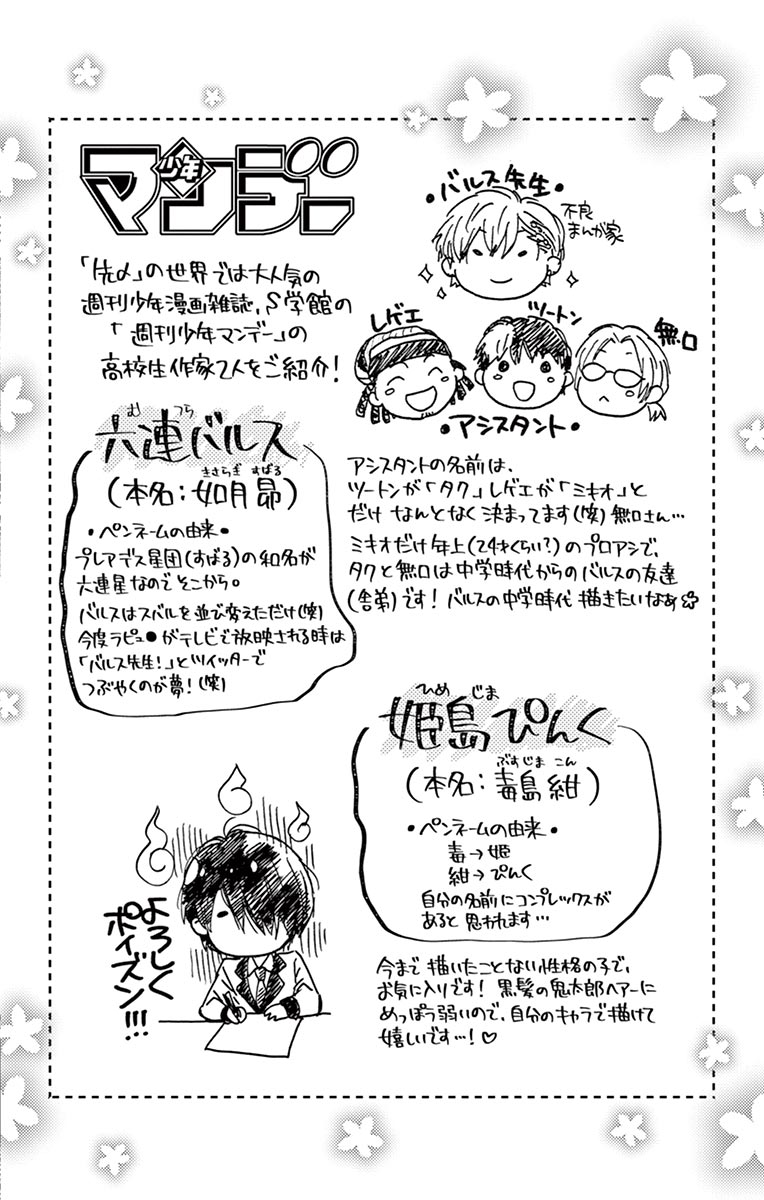 少年
マンデー
「先〆」の世界では大人気の
週刊少年漫画雑誌、S学館の
「週刊少年マンデー」の
高校生作家2人をご紹介！
・バルス先生・
不良
まんが家
レゲエ
ツートン
無口
・アシスタント・
アシスタントの名前は、
ツートンが「タク」レゲエが「ミキオ」と
だけ なんとなく 決まってます(笑) 無口さん…
ミキオだけ年上(24才くらい?)のプロアシで、
タクと無口は中学時代からのバルスの友達
(舎弟)です！ バルスの中学時代 描きたいなあ
む つら
六連バルス
きさらぎ すばる
(本名：如月 昴)
・ペンネームの由来・
プレアデス星団(すばる)の和名が
六連星なのでそこから。
バルスはスバルを並び変えただけ(笑)
今度ラピュ●がテレビで放映される時は
「バルス先生！」とツイッターで
つぶやくのが夢！(笑)
ひめ じま
姫島ぴんく
ぶすじま こん
(本名：毒島 紺)
・ペンネームの由来・
毒→姫
紺→ぴんく
自分の名前にコンプレックスが
あると思われます…
よろしく
ポイズン!!!
今まで描いたことない性格の子で、
お気に入りです！ 黒髪の鬼太郎ヘアーに
めっぽう弱いので、自分のキャラで描けて
嬉しいです…！♡